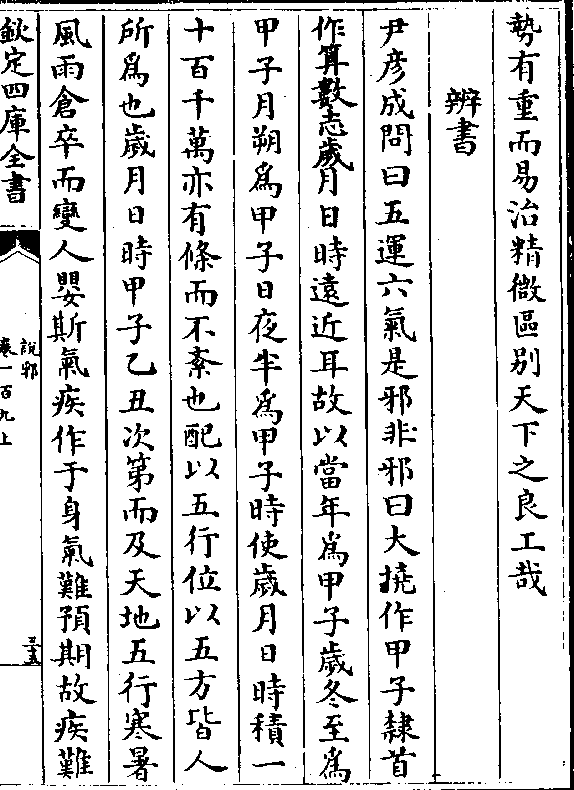 勢有重而易治精微區別天下之良工哉
辨書
尹彦成問曰五運六氣是邪非邪曰大撓作甲子隸首
作算數志歲月日時遠近耳故以當年爲甲子歲冬至爲
甲子月朔爲甲子日夜半爲甲子時使歲月日時積一
十百千萬亦有條而不紊也配以五行位以五方皆人
所爲也歲月日時甲子乙丑次第而及天地五行寒暑
風雨倉卒而變人嬰斯氣疾作于身氣難預期故疾難
欽定四庫全書
說郛
卷一百九上
三五